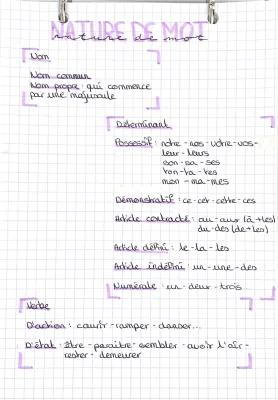 NATURE DE MOT
nature de mot
Nom
Nom commun
Nom propre : qui commence
par une majuscule
Déterminant
Possessif : notre - nos - votre - vos -
leur - leurs
son - sa - ses
ton - ta - tes
mon - ma - mes
Démonstratif : ce - cet - cette - ces
Article contracté : au - aux (à + les)
du - des (de + les)
Article défini : le - la - les
Article indéfini : un - une - des
Numérale : un - deux - trois
Verbe
D'action : courir - ramper - danser...
D'état : être - paraître - sembler - avoir l'air -
rester - demeurer